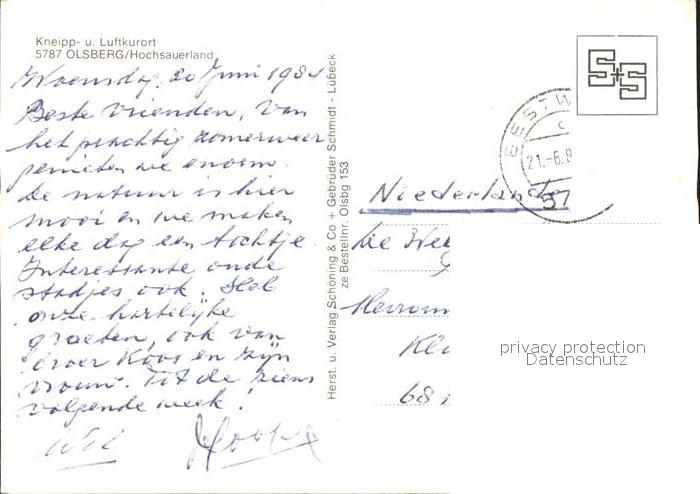 Kneipp- u. Luftkurort
5787 OLSBERG/Hochsauerland
Woensdag, 20 Juni 1984
Beste vrienden, Van
het prachtig zomerweer
genieten we enorm.
De natuur is hier
mooi en we maken
elke dag een tochtje.
Interessante oude
stadjes ook. Heel
onze hartelijke
groeten, ook van
broer Koos en zijn
vrouw. Tot de ziens
volgende week!
Wil
Herst. u. Verlag Schöning & Co + Gebrüder Schmidt - Lübeck
ze Bestellnr. Olsbg 153
S+S
BESTW
c
21.-6.8
57
Niederlande
De We
Heerom
Kl
68
privacy protection
Datenschutz